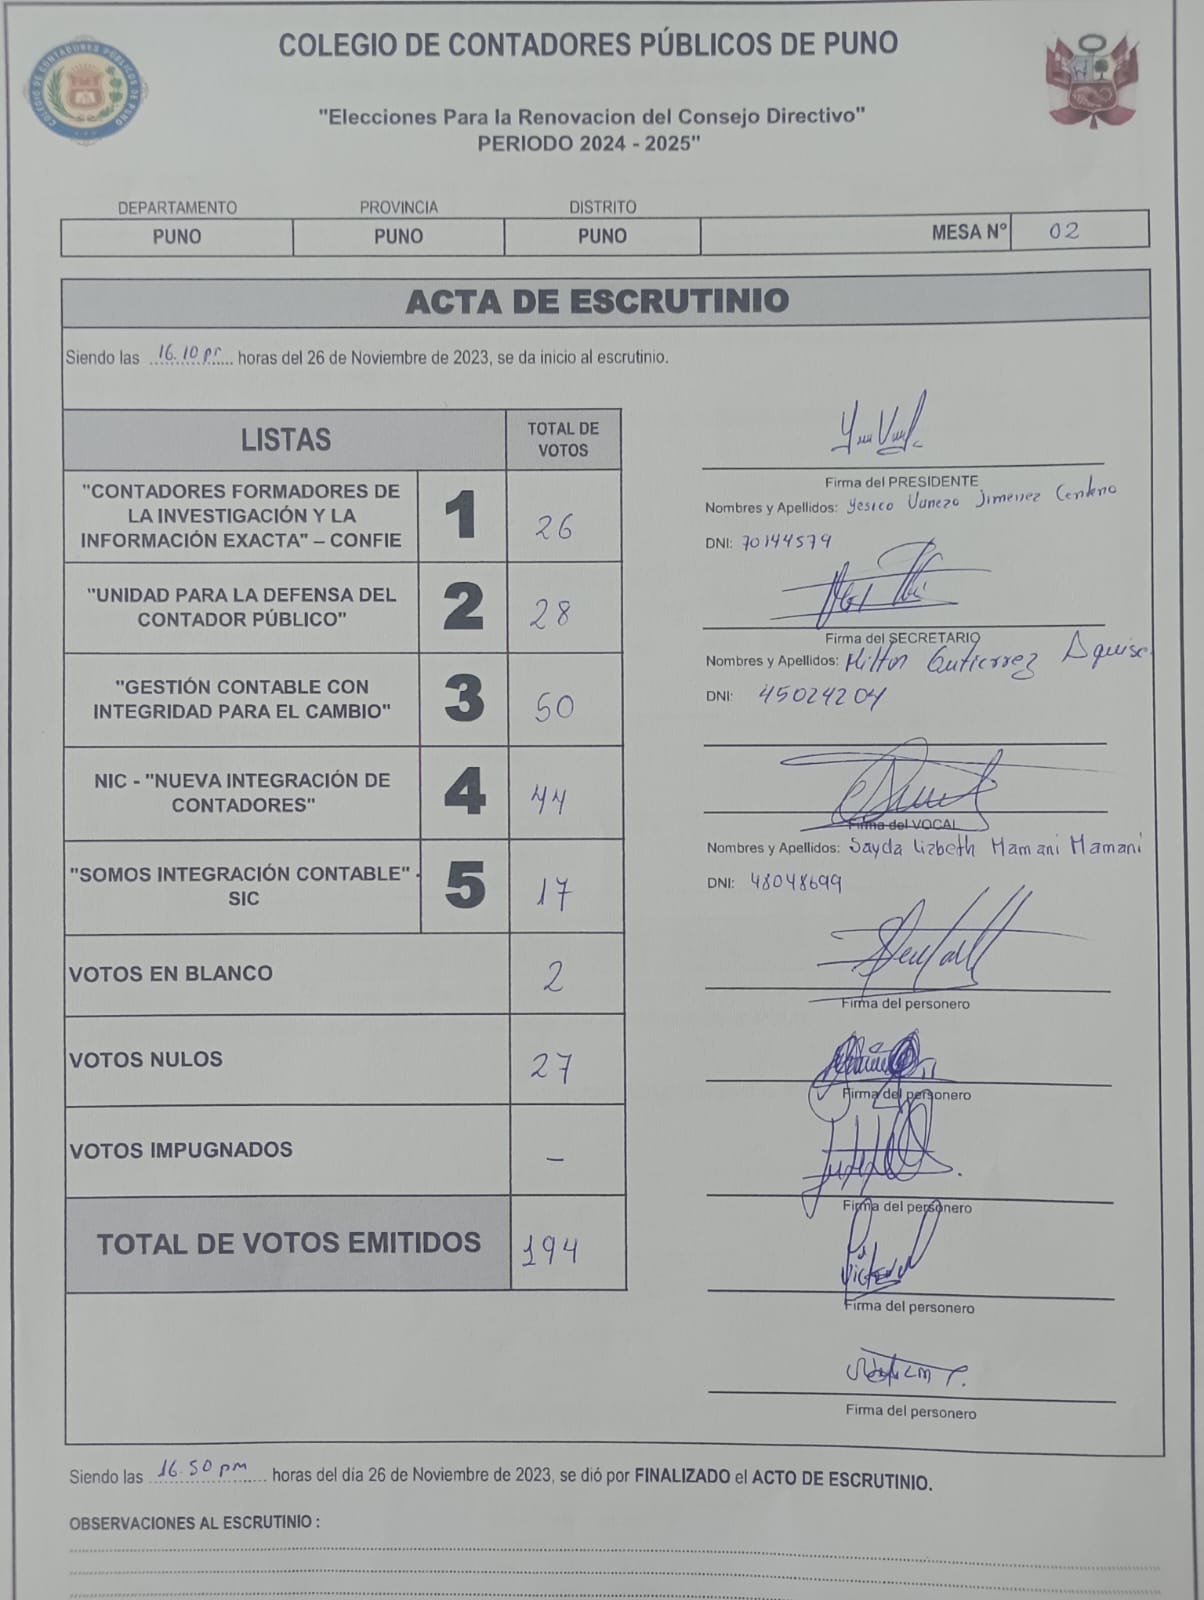 COLEGIO DE CONTADORES PÚBLICOS DE PUNO
"Elecciones Para la Renovacion del Consejo Directivo"
PERIODO 2024 - 2025"
DEPARTAMENTO PROVINCIA DISTRITO
PUNO PUNO PUNO MESA N° 02
ACTA DE ESCRUTINIO
Siendo las 16.10 pm horas del 26 de Noviembre de 2023, se da inicio al escrutinio.
LISTAS TOTAL DE VOTOS
"CONTADORES FORMADORES DE
LA INVESTIGACIÓN Y LA
INFORMACIÓN EXACTA" – CONFIE
1 26
"UNIDAD PARA LA DEFENSA DEL
CONTADOR PÚBLICO"
2 28
"GESTIÓN CONTABLE CON
INTEGRIDAD PARA EL CAMBIO"
3 50
NIC - "NUEVA INTEGRACIÓN DE
CONTADORES"
4 44
"SOMOS INTEGRACIÓN CONTABLE" -
SIC
5 17
VOTOS EN BLANCO 2
VOTOS NULOS 27
VOTOS IMPUGNADOS –
TOTAL DE VOTOS EMITIDOS 194
Firma del PRESIDENTE
Nombres y Apellidos: Yesica Vaneza Jimenez Centeno
DNI: 70144579
Firma del SECRETARIO
Nombres y Apellidos: Milton Gutierrez Aquise
DNI: 45024204
Firma del VOCAL
Nombres y Apellidos: Sayda Lizbeth Mamani Mamani
DNI: 48048699
Firma del personero
Firma del personero
Firma del personero
Firma del personero
Firma del personero
Siendo las 16.50 pm horas del día 26 de Noviembre de 2023, se dió por FINALIZADO el ACTO DE ESCRUTINIO.
OBSERVACIONES AL ESCRUTINIO :